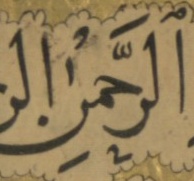 الرَّحمٰنِ الر